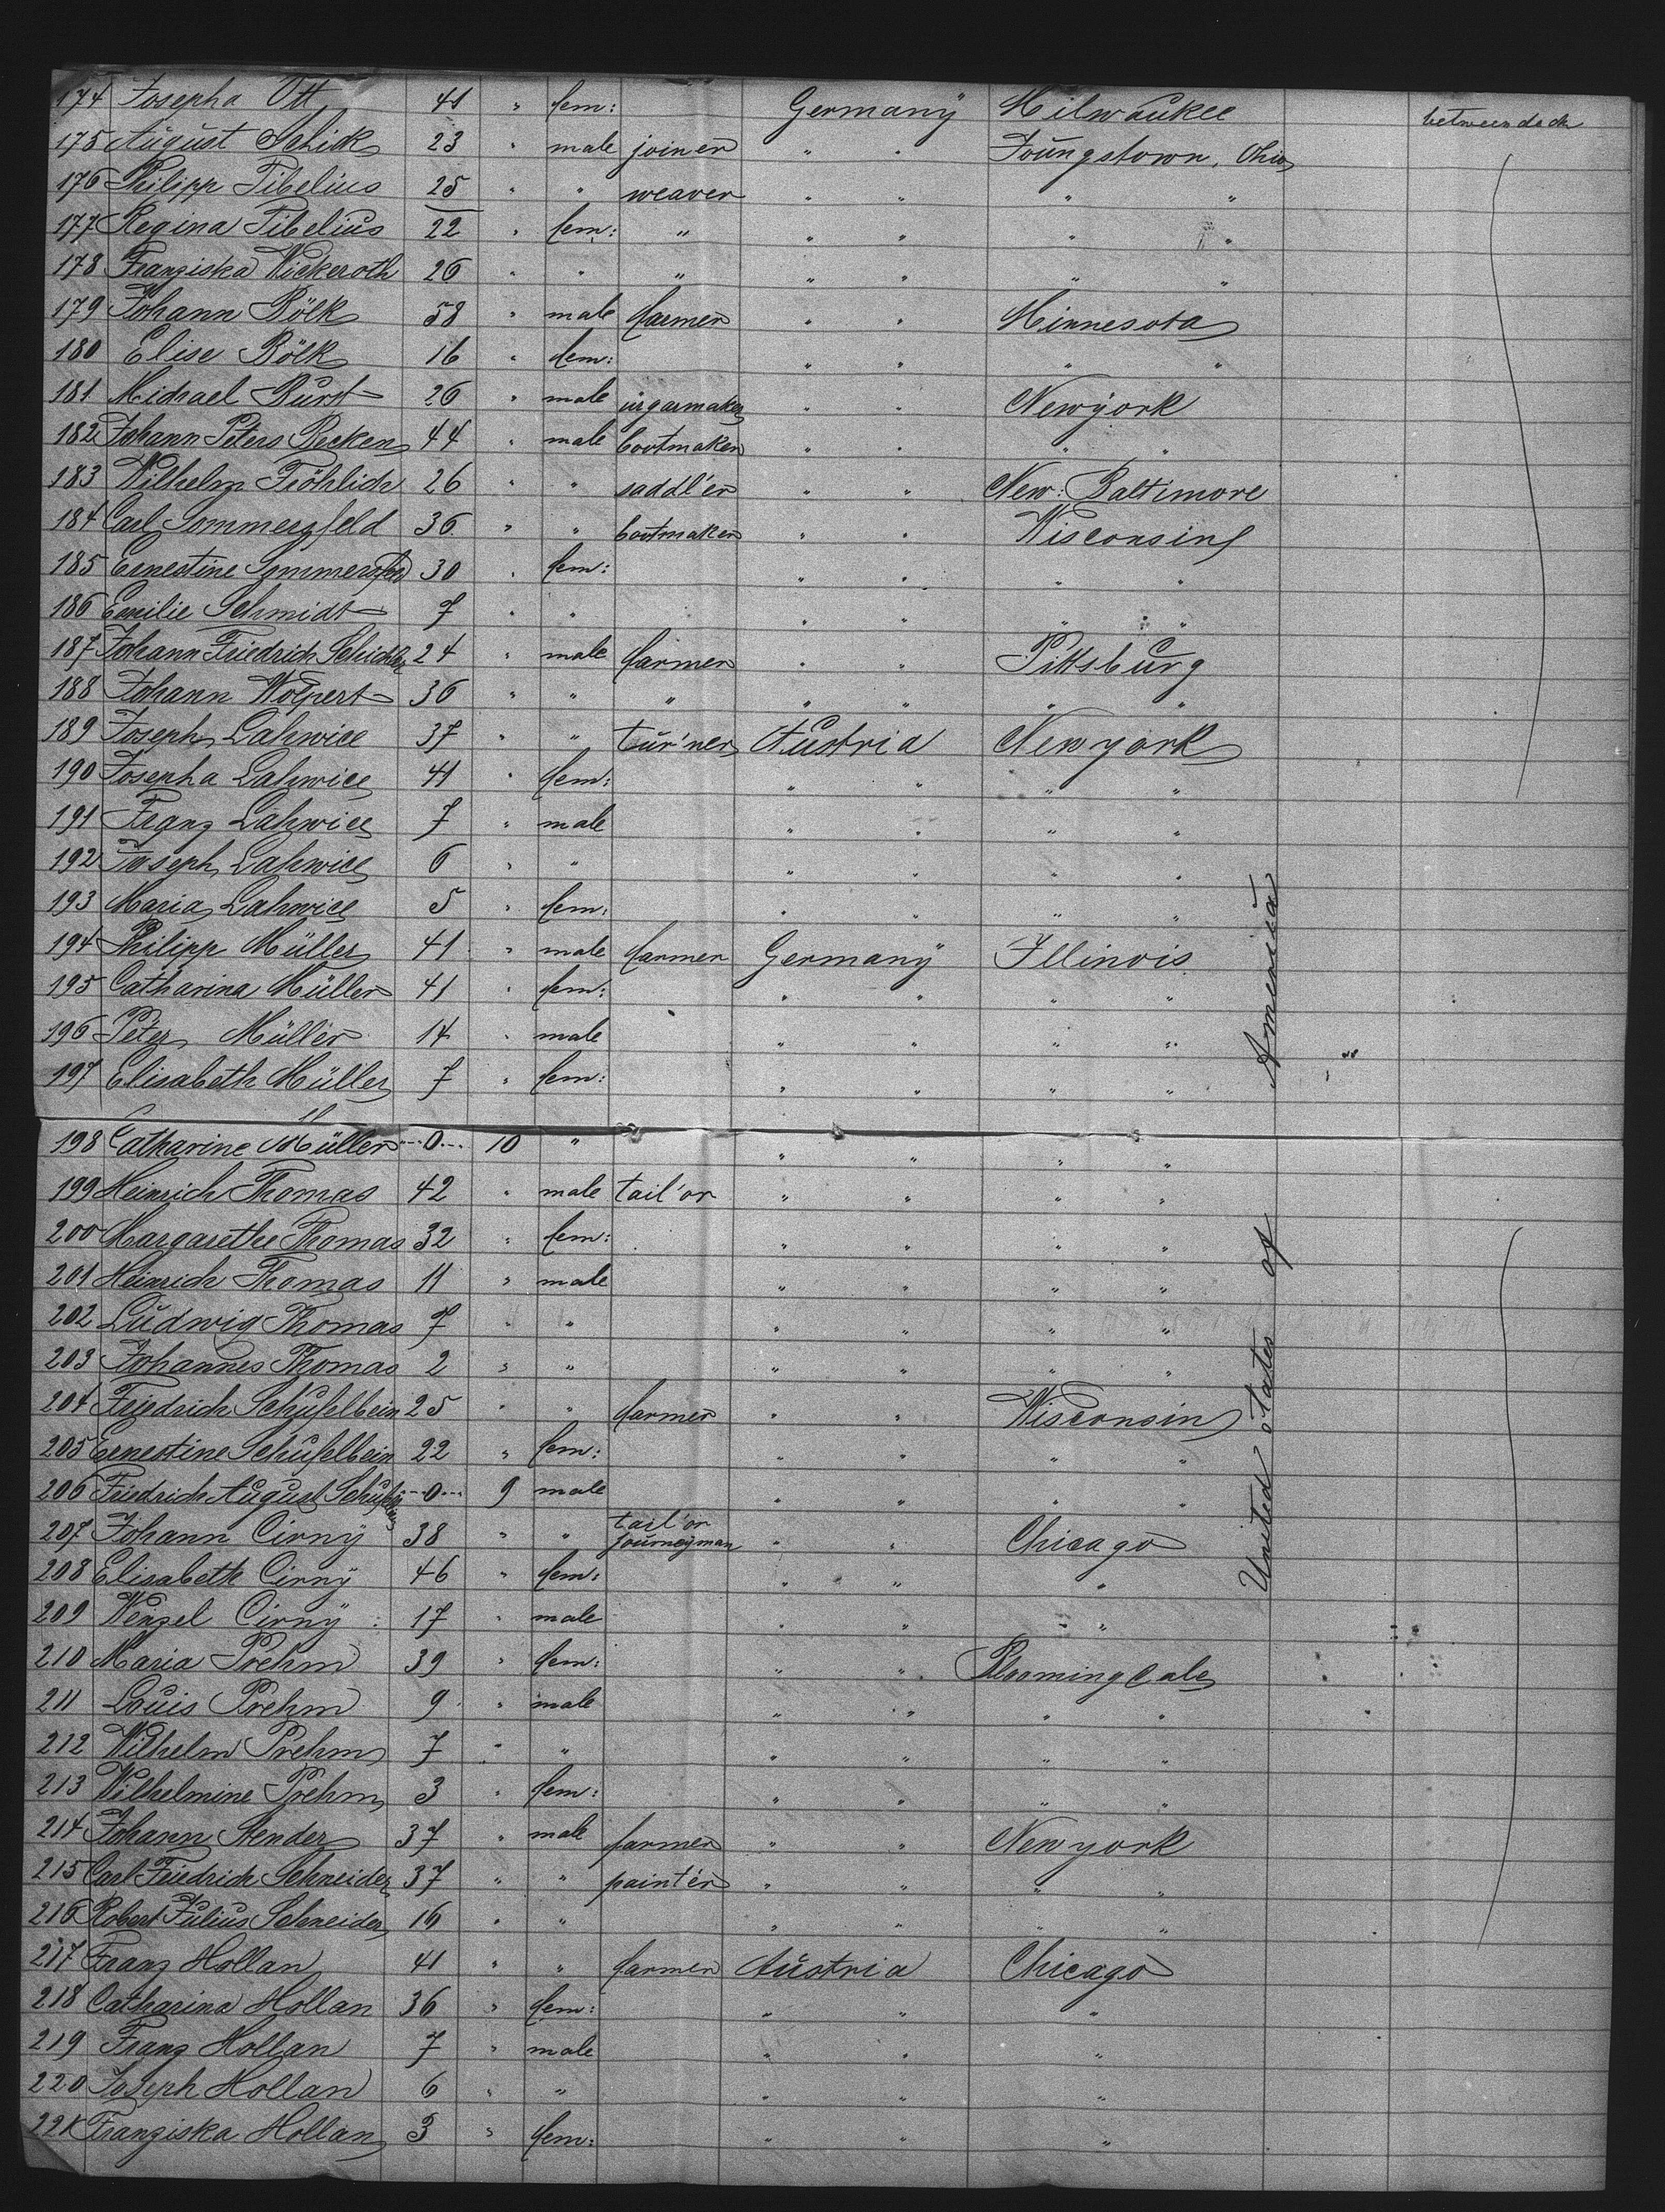 174 Josepha Ott 41 " fem: Germany Milwaukee betweendeck
175 August Schick 23 " male joiner " " Youngstown, Ohio
176 Philipp Tibelius 25 " " weaver " " " "
177 Regina Tibelius 22 " fem: " " " " "
178 Franziska Wickeroth 26 " " " " " " "
179 Johann Bölk 58 " male farmer " " Minnesota
180 Elise Bölk 16 " fem: " " " "
181 Michael Burst 26 " male cigarmaker " " Newyork
182 Johann Peters Becken 44 " male bootmaker " " " "
183 Wilhelm Fröhlich 26 " " saddl'er " " New: Baltimore
184 Carl Sommerfeld 36 " " bootmaker " " Wisconsin
185 Ernestine Sommerfeld 30 " fem: " " " "
186 Emilie Schmidt 7 " " " " " "
187 Johann Friedrich 24 " male farmer " " Pittsburg
188 Johann Wolpert 36 " " " " " " "
189 Joseph Lahwice 37 " " tur'ner Austria Newyork
190 Josepha Lahwice 41 " fem: " " " "
191 Franz Lahwice 7 " male " " " "
192 Joseph Lahwice 6 " " " " " "
193 Maria Lahwice 5 " fem: " " " "
194 Philipp Müller 41 " male farmer Germany Illinois
195 Catharina Müller 41 " fem: " " " "
196 Peter Müller 14 " male " " " "
197 Elisabeth Müller 7 " fem: " " " "
198 Catharine Müller 0 10 " " " " "
199 Heinrich Thomas 42 " male tail'or " " " "
200 Margarethe Thomas 32 " fem: " " " "
201 Heinrich Thomas 11 " male " " " "
202 Ludwig Thomas 7 " " " " " "
203 Johannes Thomas 2 " " " " " "
204 Friedrich Schufelbein 25 " " farmer " " Wisconsin
205 Ernestine Schufelbein 22 " fem: " " " "
206 Friedrich August Schufelbein 0 9 male " " " "
207 Johann Cirny 38 " " tail'or journeyman " " Chicago
208 Elisabeth Cirny 46 " fem: " " "
209 Wenzel Cirny 17 " male " " "
210 Maria Prehm 39 " fem: " " Bloomingdale
211 Louis Prehm 9 " male " " " "
212 Wilhelm Prehm 7 " " " " " "
213 Wilhelmine Prehm 3 " fem: " " " "
214 Johann Stender 37 " male farmer " " Newyork
215 Carl Friedrich Schneider 37 " " painter " " " "
216 Robert Julius Schneider 16 " " " " " "
217 Franz Hollan 41 " " farmer Austria Chicago
218 Catharina Hollan 36 " fem: " " "
219 Franz Hollan 7 " male " " "
220 Joseph Hollan 6 " " " " "
221 Franziska Hollan 3 " fem: " " "
United States of America